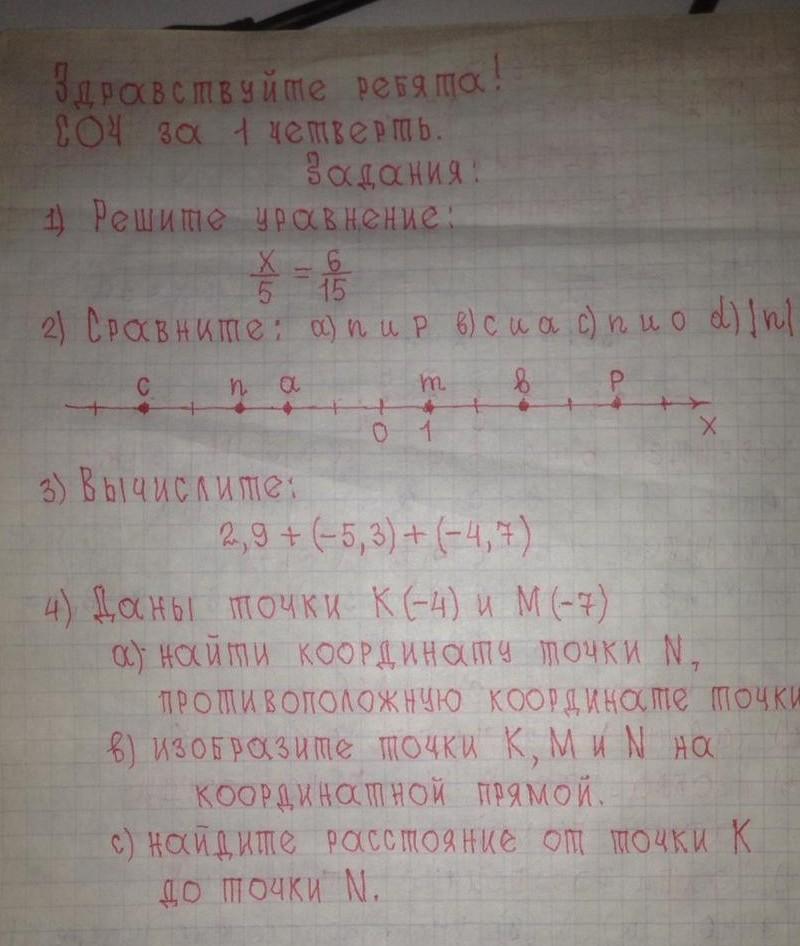 Здравствуйте ребята!
СОЧ за 1 четверть.
Задания:
1) Решите уравнение:
x/5 = 6/15
2) Сравните: а) n и p в) c и a с) n и 0 d) |n|
c n a m b p
0 1 x
3) Вычислите:
2,9 + (-5,3) + (-4,7)
4) Даны точки K(-4) и M(-7)
а) найти координату точки N,
противоположную координате точки
в) изобразите точки K, M и N на
координатной прямой.
с) найдите расстояние от точки K
до точки N.